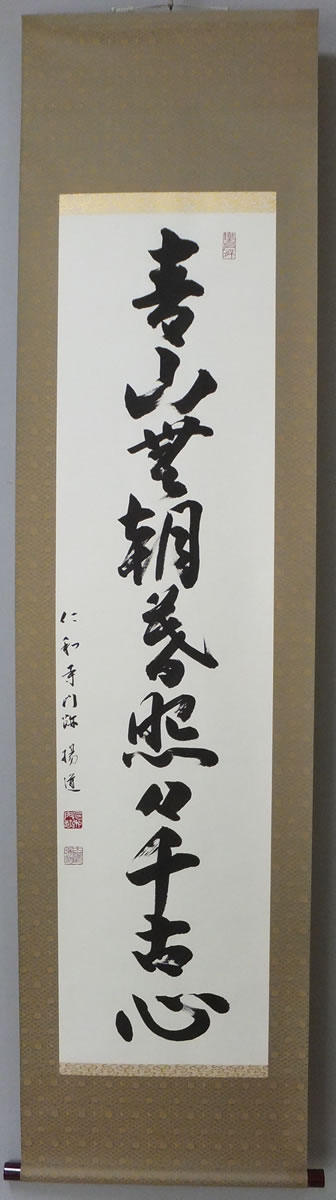 青山無朝暮照々千古心
仁和寺門跡 揚道